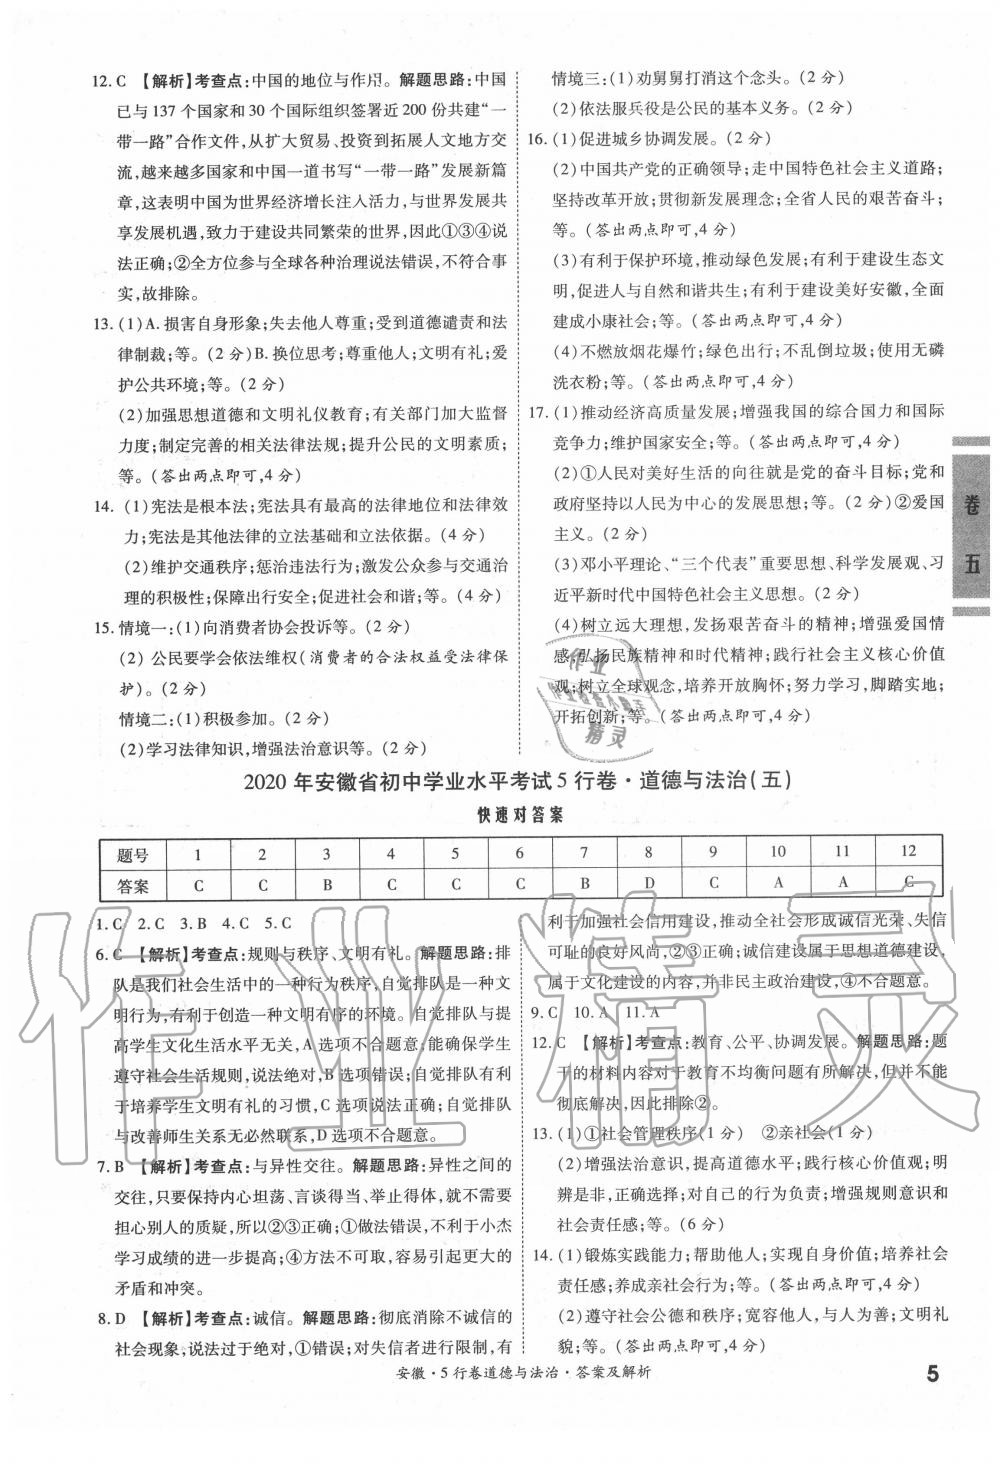 12. C 【解析】考查点:中国的地位与作用。解题思路:中国
已与 137 个国家和 30 个国际组织签署近 200 份共建“一
带一路”合作文件,从扩大贸易、投资到拓展人文地方交
流,越来越多国家和中国一道书写“一带一路”发展新篇
章,这表明中国为世界经济增长注入活力,与世界发展共
享发展机遇,致力于建设共同繁荣的世界,因此①③④说
法正确;②全方位参与全球各种治理说法错误,不符合事
实,故排除。
13. (1)A. 损害自身形象;失去他人尊重;受到道德谴责和法
律制裁;等。(2 分)B. 换位思考;尊重他人;文明有礼;爱
护公共环境;等。(2 分)
(2)加强思想道德和文明礼仪教育;有关部门加大监督
力度;制定完善的相关法律法规;提升公民的文明素质;
等。(答出两点即可,4 分)
14. (1)宪法是根本法;宪法具有最高的法律地位和法律效
力;宪法是其他法律的立法基础和立法依据。(4 分)
(2)维护交通秩序;惩治违法行为;激发公众参与交通治
理的积极性;保障出行安全;促进社会和谐;等。(4 分)
15. 情境一:(1)向消费者协会投诉等。(2 分)
(2) 公民要学会依法维权(消费者的合法权益受法律保
护)。(2 分)
情境二:(1)积极参加。(2 分)
(2)学习法律知识,增强法治意识等。(2 分)
情境三:(1)劝舅舅打消这个念头。(2 分)
(2)依法服兵役是公民的基本义务。(2 分)
16. (1)促进城乡协调发展。(2 分)
(2)中国共产党的正确领导;走中国特色社会主义道路;
坚持改革开放;贯彻新发展理念;全省人民的艰苦奋斗;
等。(答出两点即可,4 分)
(3)有利于保护环境,推动绿色发展;有利于建设生态文
明,促进人与自然和谐共生;有利于建设美好安徽,全面
建成小康社会;等。(答出两点即可,4 分)
(4)不燃放烟花爆竹;绿色出行;不乱倒垃圾;使用无磷
洗衣粉;等。(答出两点即可,4 分)
17. (1)推动经济高质量发展;增强我国的综合国力和国际
竞争力;维护国家安全;等。(2 分)
(2)①人民对美好生活的向往就是党的奋斗目标;党和
政府坚持以人民为中心的发展思想;等。(2 分)②爱国
主义。(2 分)
(3)邓小平理论、“三个代表”重要思想、科学发展观、习
近平新时代中国特色社会主义思想。(2 分)
(4)树立远大理想,发扬艰苦奋斗的精神;增强爱国情
感,弘扬民族精神和时代精神;践行社会主义核心价值
观;树立全球观念,培养开放胸怀;努力学习,脚踏实地;
开拓创新;等。(答出两点即可,4 分)
卷五
2020 年安徽省初中学业水平考试 5 行卷·道德与法治(五)
快速对答案
题号 1 2 3 4 5 6 7 8 9 10 11 12
答案 C C B C C C B D C A A C
1. C 2. C 3. B 4. C 5. C
6. C 【解析】考查点:规则与秩序、文明有礼。解题思路:排
队是我们社会生活中的一种行为秩序,自觉排队是一种文
明行为,有利于创造一种文明有序的环境。自觉排队与提
高学生文化生活水平无关,A 选项不合题意;能确保学生
遵守社会生活规则,说法绝对,B 选项错误;自觉排队有利
于培养学生文明有礼的习惯,C 选项说法正确;自觉排队
与改善师生关系无必然联系,D 选项不合题意。
7. B 【解析】考查点:与异性交往。解题思路:异性之间的
交往,只要保持内心坦荡、言谈得当、举止得体,就不需要
担心别人的质疑,所以②③正确;①做法错误,不利于小杰
学习成绩的进一步提高;④方法不可取,容易引起更大的
矛盾和冲突。
8. D 【解析】考查点:诚信。解题思路:彻底消除不诚信的
社会现象,说法过于绝对,①错误;对失信者进行限制,有
利于加强社会信用建设,推动全社会形成诚信光荣、失信
可耻的良好风尚,②③正确;诚信建设属于思想道德建设,
属于文化建设的内容,并非民主政治建设,④不合题意。
9. C 10. A 11. A
12. C 【解析】考查点:教育、公平、协调发展。解题思路:题
干的材料内容对于教育不均衡问题有所解决,但并不能
彻底解决,因此排除②。
13. (1)①社会管理秩序(1 分) ②亲社会(1 分)
(2)增强法治意识,提高道德水平;践行核心价值观;明
辨是非,正确选择;对自己的行为负责;增强规则意识和
社会责任感;等。(6 分)
14. (1)锻炼实践能力;帮助他人;实现自身价值;培养社会
责任感;养成亲社会行为;等。(答出两点即可,4 分)
(2)遵守社会公德和秩序;宽容他人,与人为善;文明礼
貌;等。(答出两点即可,4 分)
安徽·5 行卷道德与法治·答案及解析
5
作业精灵